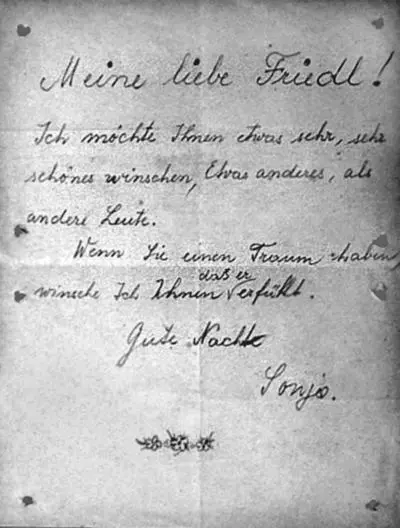 Meine liebe Friedl!
Ich möchte Ihnen etwas sehr, sehr
schönes winschen, Etvas anderes, als
andere Leute.
Wenn Sie einen Traum haben,
daß er
winsche Ich Ihnen verfühlt.
Gute Nacht
Sonja.